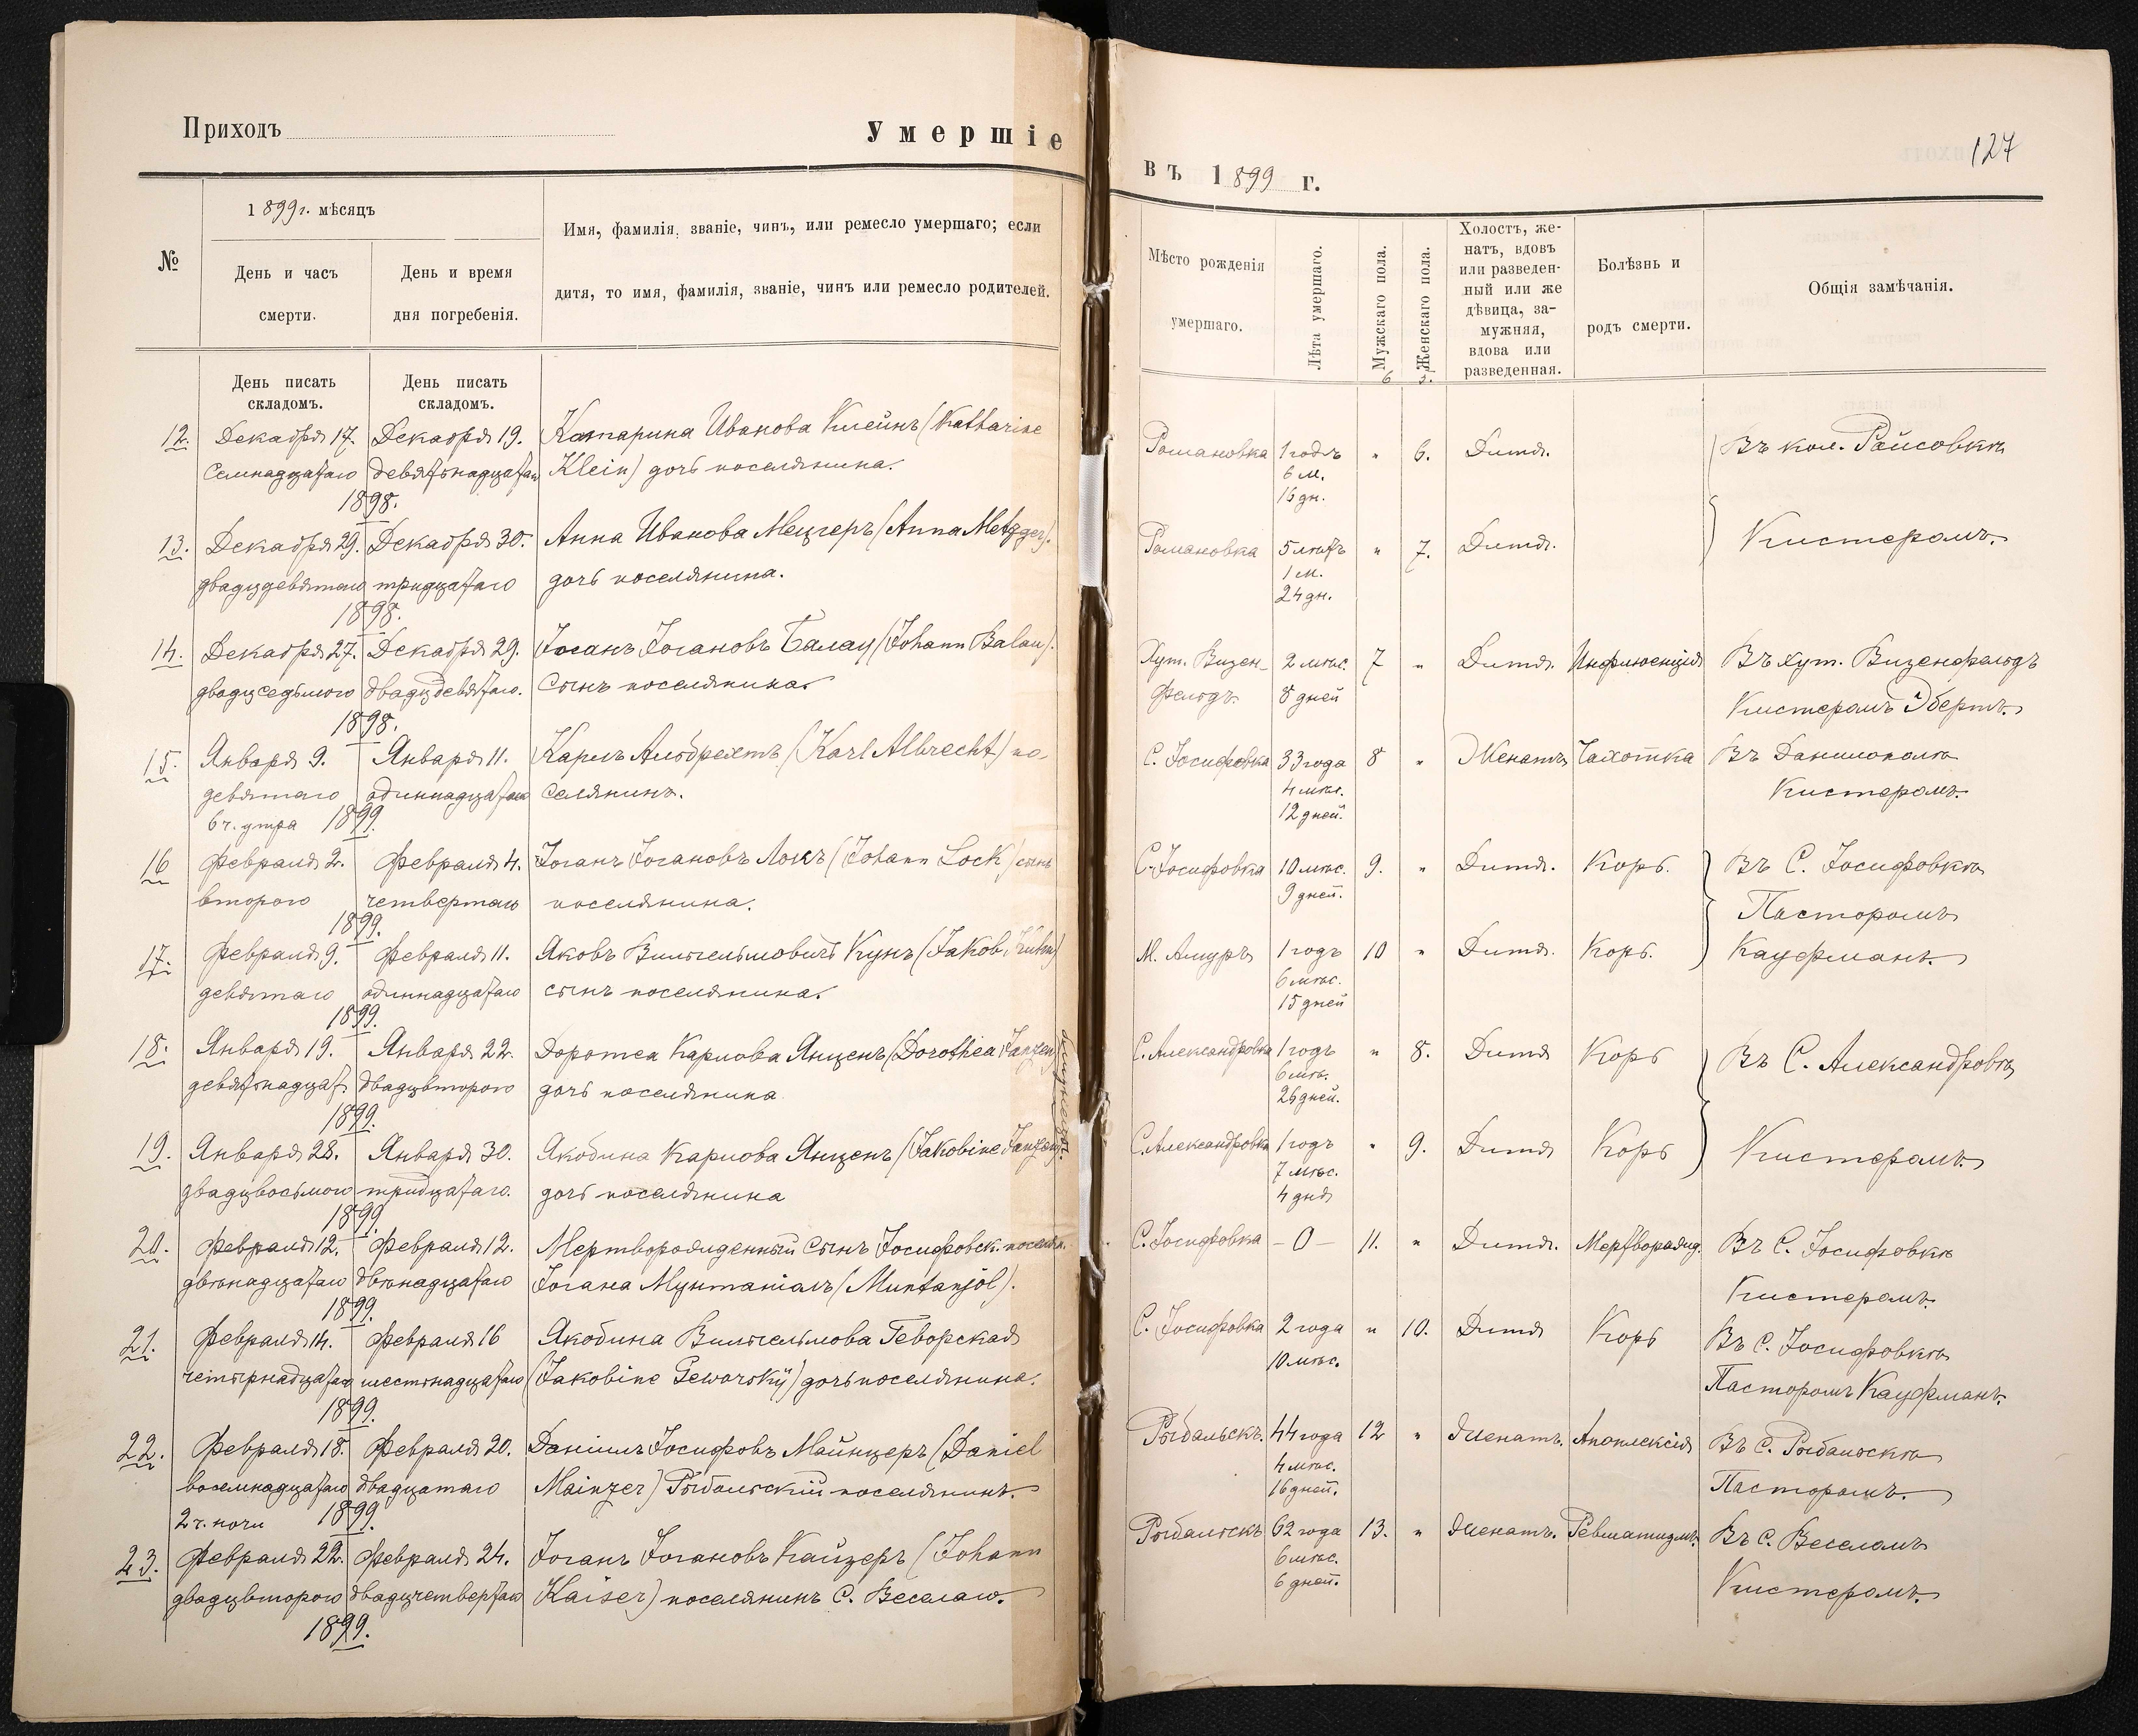 Приходъ
Умершіе
въ 1899 г.
127
№
1899 г. мѣсяцъ
День и часъ
смерти.
День и время
дня погребенія.
Имя, фамилія, званіе, чинъ, или ремесло умершаго; если
дитя, то имя, фамилія, званіе, чинъ или ремесло родителей.
Мѣсто рожденія
умершаго.
Лѣта умершаго.
Мужскаго пола.
Женскаго пола.
Холостъ, же-
натъ, вдовъ
или разведен-
ный или же
дѣвица, за-
мужняя,
вдова или
разведенная.
Болѣзнь и
родъ смерти.
Общія замѣчанія.
День писать
складомъ.
День писать
складомъ.
6 5.
12. Декабря 17. Декабря 19. Катарина Иванова Клейнъ (Katharine
семнадцатаго девятнадцатаго Klein) дочь поселянина.
1898.
Романовка 1 годъ " 6. Дитя. Въ кол. Райсовкѣ
6 м.
16 дн.
13. Декабря 29. Декабря 30. Анна Иванова Мецгеръ (Anna Metzger).
двадцдевятаго тридцатаго дочь поселянина.
1898.
Романовка 5 лѣтъ " 7. Дитя. Кистеромъ.
1 м.
24 дн.
14. Декабря 27. Декабря 29. Іоганъ Іогановъ Балау (Johann Balau).
двадцседьмого двадцдевятаго. Сынъ поселянина.
1898.
Хут. Визен- 2 мѣс. 7 " Дитя. Инфлюенція Въ хут. Визенфельдъ
фельдъ. 8 дней Кистеромъ Эбертъ.
15. Января 9. Января 11. Карлъ Альбрехтъ (Karl Albrecht) по-
девятаго одиннадцатаго селянинъ.
6 ч. утра 1899.
С. Іосифовка 33 года 8 " Женатъ Чахотка Въ Данилополѣ
4 мѣс. Кистеромъ.
12 дней.
16 Февраля 2. Февраля 4. Іоганъ Іогановъ Локъ (Johann Lock) сынъ
второго четвертаго поселянина.
1899.
С. Іосифовка 10 мѣс. 9. " Дитя. Корь. Въ С. Іосифовкѣ
9 дней. Пасторомъ
17. Февраля 9. Февраля 11. Яковъ Вильгельмовичъ Кунъ (Jakob Kuhn)
девятаго одиннадцатаго сынъ поселянина.
1899.
М. Амуръ 1 годъ 10 " Дитя. Корь. Кауфманъ.
6 мѣс.
15 дней
18. Января 19. Января 22. Доротеа Карлова Янценъ (Dorothea Janzen)
девятнадцат. двадцвторого дочь поселянина
1899.
С. Александровка 1 годъ " 8. Дитя Корь Въ С. Александровкѣ
6 мѣс.
26 дней.
19. Января 28. Января 30. Якобина Карлова Янценъ (Jakobine Janzen).
двадцвосьмого тридцатаго. дочь поселянина
1899.
С. Александровка 1 годъ " 9. Дитя Корь Кистеромъ.
7 мѣс.
4 дня
20. Февраля 12. Февраля 12. Мертворожденный сынъ Іосифовск. поселян.
двѣнадцатаго двѣнадцатаго Іогана Мунтаніолъ (Muntanjol).
1899.
С. Іосифовка – 0 – 11. " Дитя. Мертворожд. Въ С. Іосифовкѣ
Кистеромъ.
21. Февраля 14. Февраля 16 Якобина Вильгельмова Геворская
четырнадцатаго шестнадцатаго (Jakobine Geworsky) дочь поселянина.
1899.
С. Іосифовка 2 года " 10. Дитя Корь Въ С. Іосифовкѣ
10 мѣс. Пасторомъ Кауфманъ.
22. Февраля 18. Февраля 20. Даніилъ Іосифовъ Майнцеръ (Daniel
восемнадцатаго двадцатаго Mainzer) Рыбальскій поселянинъ.
2 ч. ночи 1899.
Рыбальскъ. 44 года 12 " Женатъ. Апоплексія Въ С. Рыбальскѣ
4 мѣс. Пасторомъ.
16 дней.
23. Февраля 22. Февраля 24. Іоганъ Іогановъ Кайзеръ (Johann
двадцвторого двадцчетвертаго Kaiser) поселянинъ С. Веселаго.
1899.
Рыбальскъ 62 года 13. " Женатъ. Ревматизмъ. Въ С. Веселомъ
6 мѣс. Кистеромъ.
6 дней.